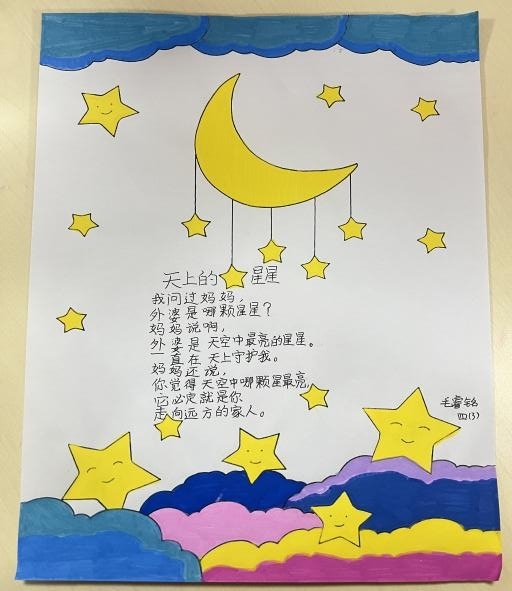 天上的星星
我问过妈妈，
外婆是哪颗星星？
妈妈说啊，
外婆是天空中最亮的星星。
一直在天上守护我。
妈妈还说，
你觉得天空中哪颗星最亮，
它必定就是你
走向远方的家人。
毛睿铭
四(3)